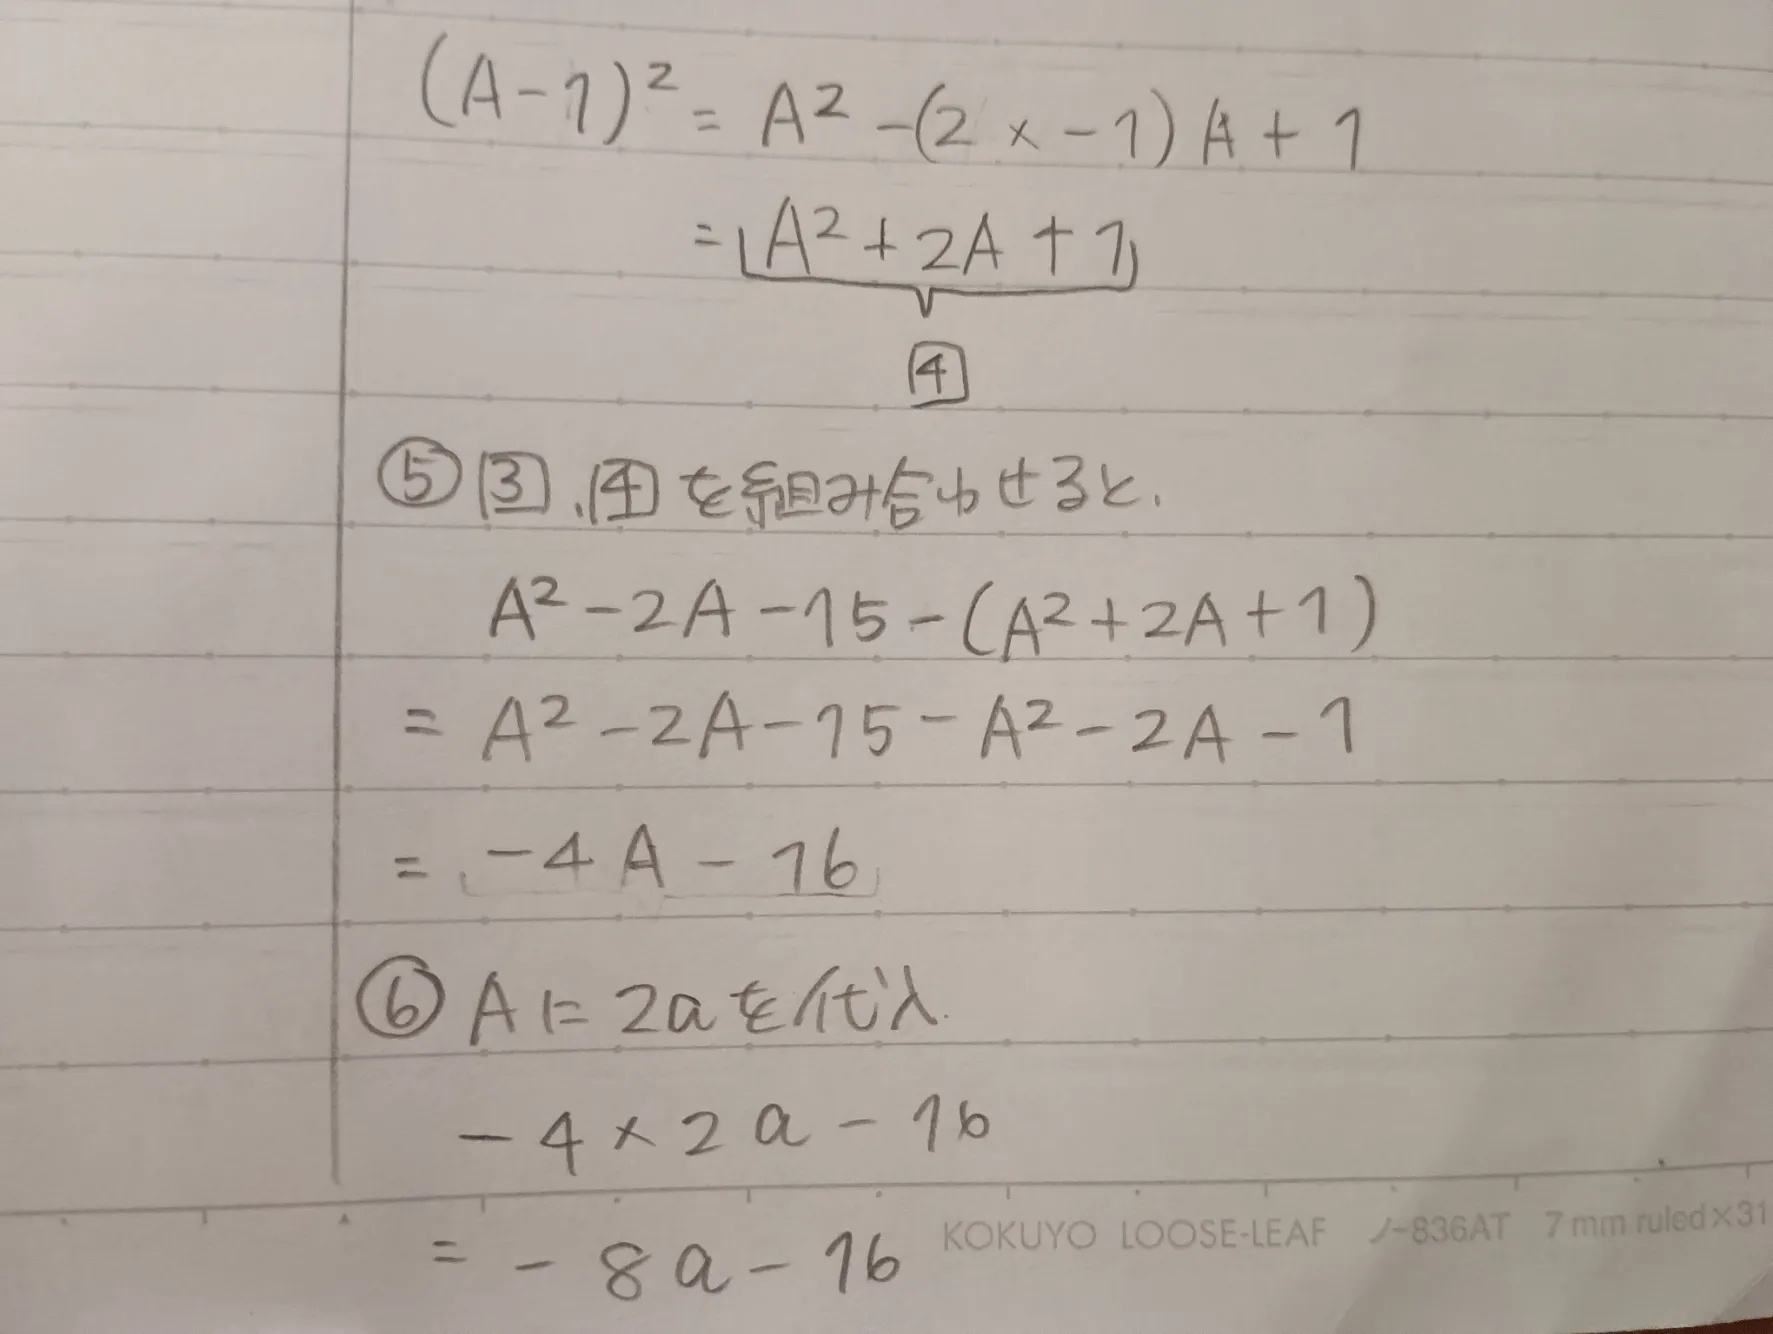 (A-1)² = A² -(2 × -1) A + 1
= A² + 2A + 1
4
⑤ 3、4 を組み合わせると、
A² - 2A - 15 - (A² + 2A + 1)
= A² - 2A - 15 - A² - 2A - 1
= -4A - 16
⑥ Aに 2aを代入
-4 × 2a - 16
= -8a - 16
KOKUYO LOOSE-LEAF ノ-836AT 7mm ruled×31